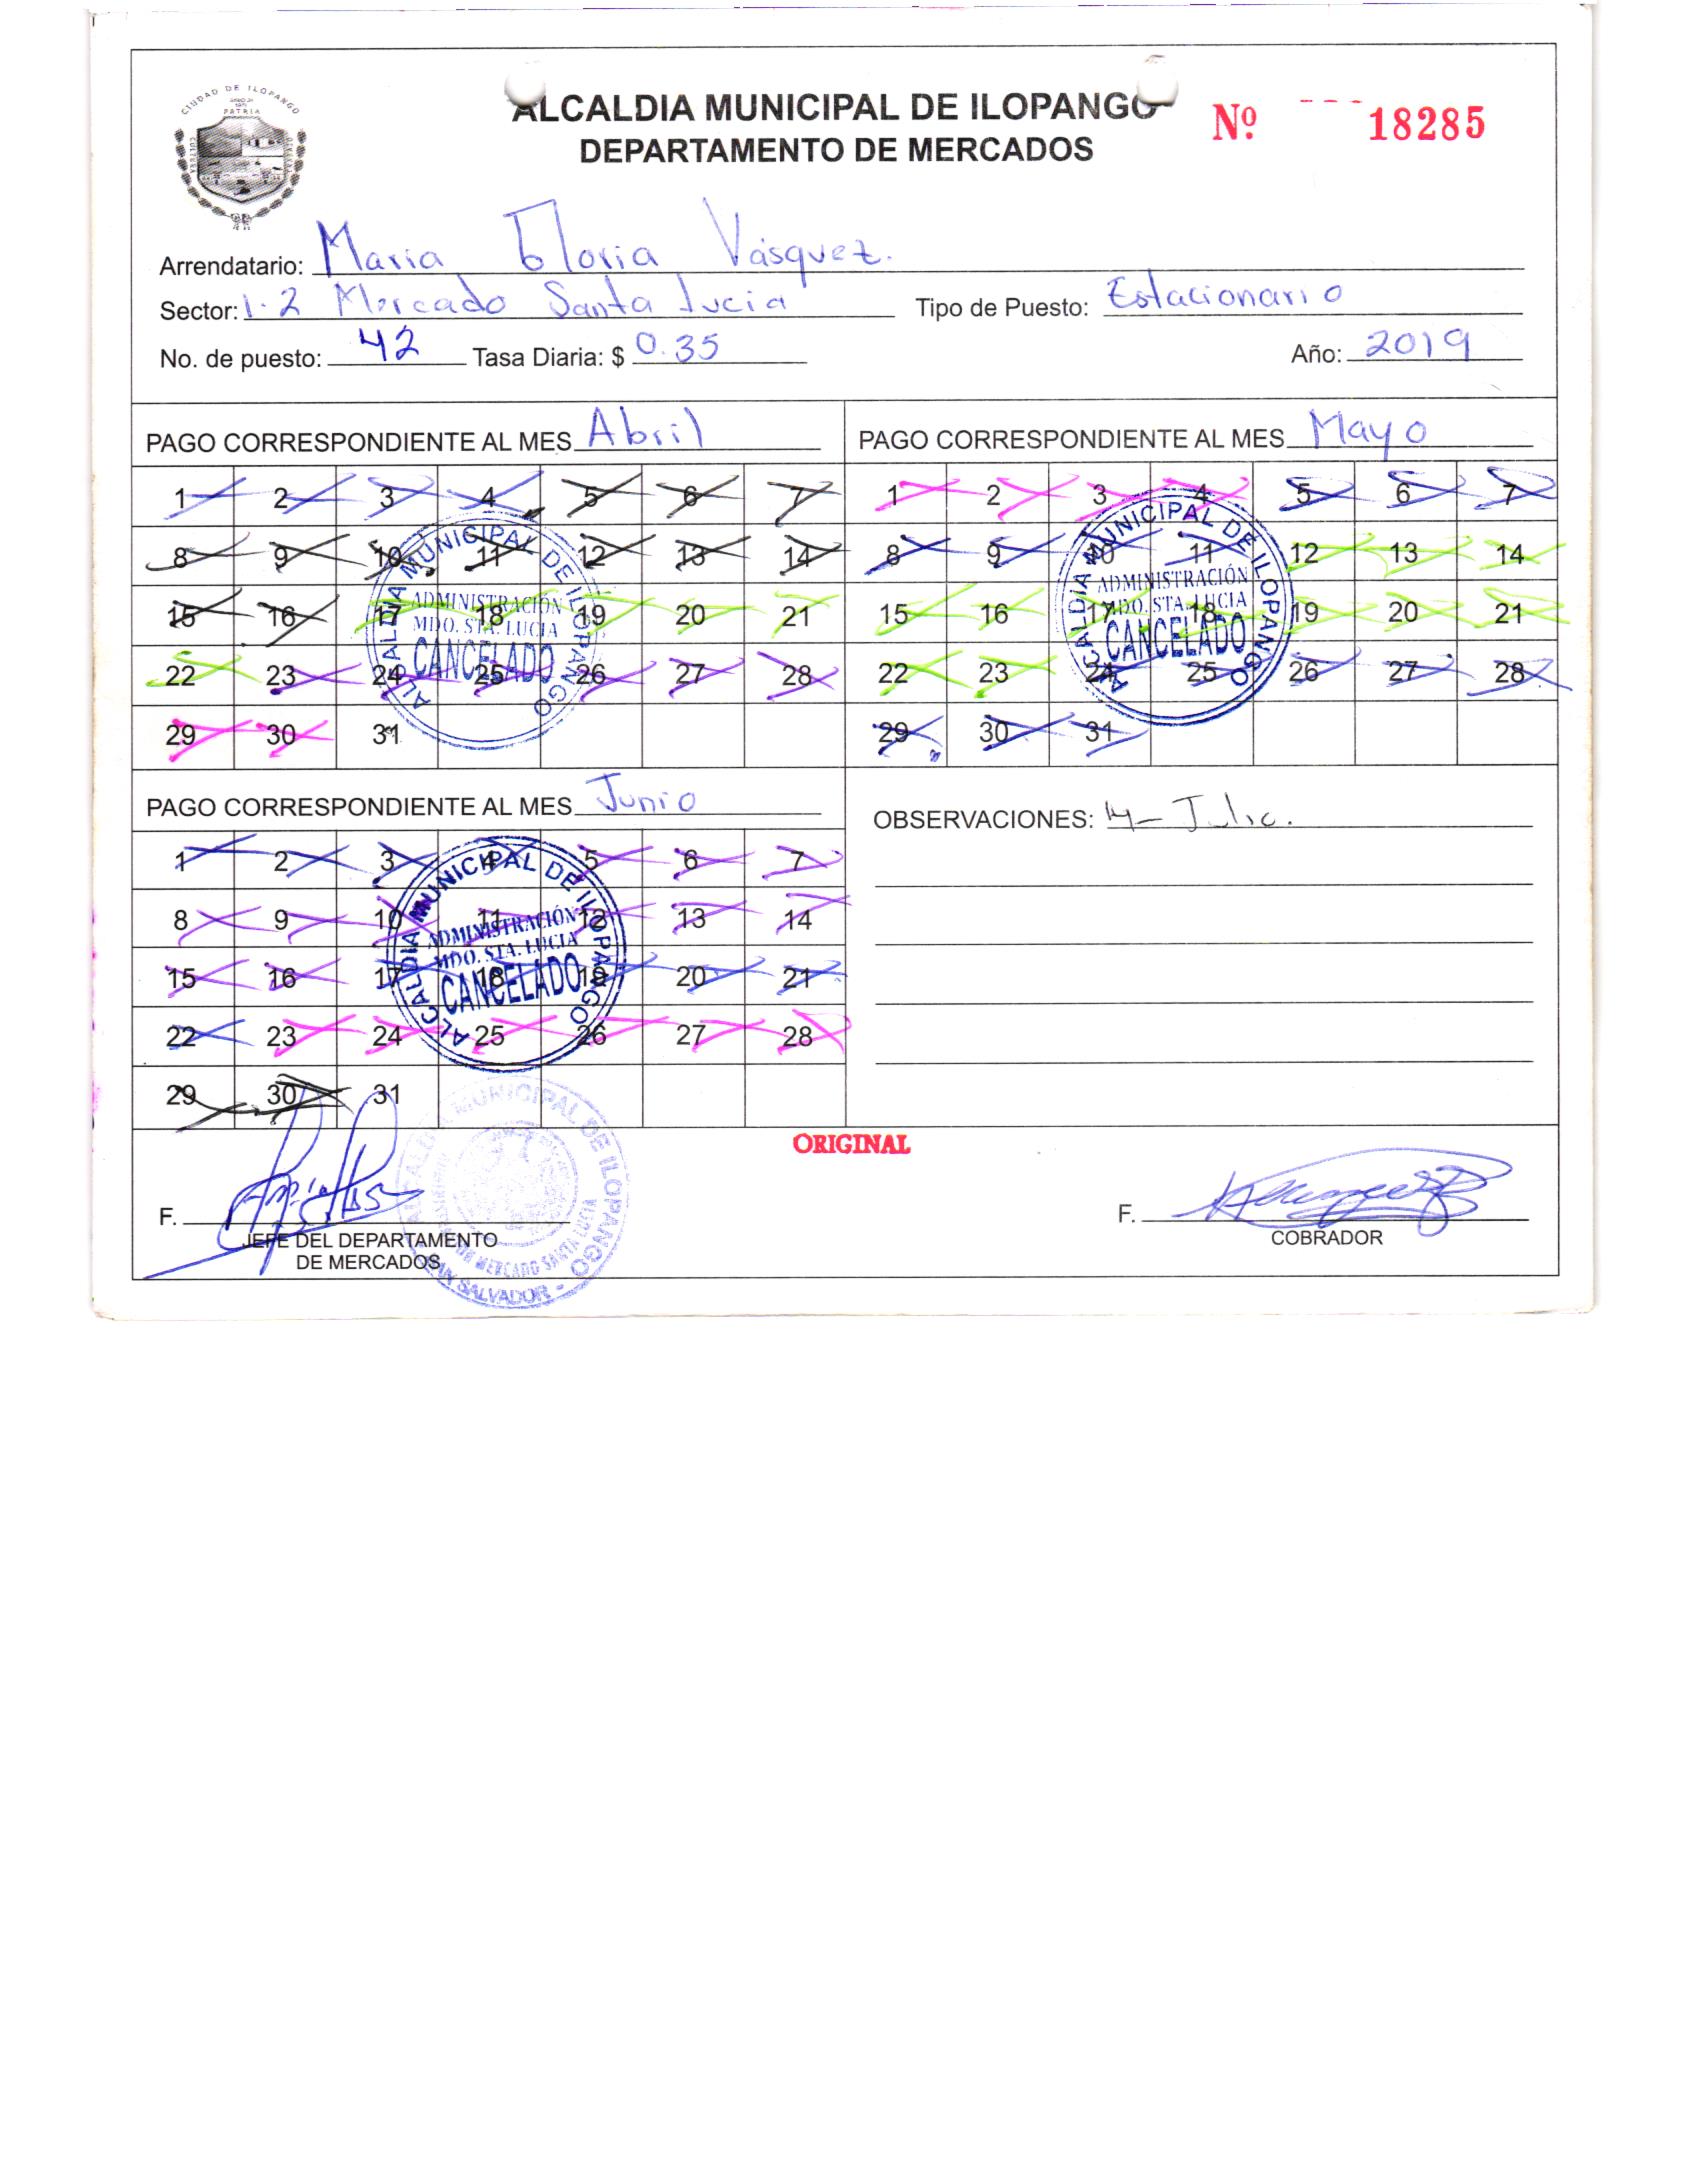 CIUDAD DE ILOPANGO
PATRIA
ALCALDIA MUNICIPAL DE ILOPANGO
DEPARTAMENTO DE MERCADOS
Nº 18285
Arrendatario: Maria Gloria Vásquez.
Sector: 1-2 Mercado Santa Lucia Tipo de Puesto: Estacionario
No. de puesto: 42 Tasa Diaria: $ 0.35 Año: 2019
PAGO CORRESPONDIENTE AL MES Abril
1 2 3 4 5 6 7
8 9 10 11 12 13 14
15 16 17 18 19 20 21
22 23 24 25 26 27 28
29 30 31
ALCALDIA MUNICIPAL DE ILOPANGO
ADMINISTRACIÓN
MDO. STA. LUCIA
CANCELADO
PAGO CORRESPONDIENTE AL MES Mayo
1 2 3 4 5 6 7
8 9 10 11 12 13 14
15 16 17 18 19 20 21
22 23 24 25 26 27 28
29 30 31
ALCALDIA MUNICIPAL DE ILOPANGO
ADMINISTRACIÓN
MDO. STA. LUCIA
CANCELADO
PAGO CORRESPONDIENTE AL MES Junio
1 2 3 4 5 6 7
8 9 10 11 12 13 14
15 16 17 18 19 20 21
22 23 24 25 26 27 28
29 30 31
ALCALDIA MUNICIPAL DE ILOPANGO
ADMINISTRACIÓN
MDO. STA. LUCIA
CANCELADO
OBSERVACIONES: 14- Julio.
ORIGINAL
F.
JEFE DEL DEPARTAMENTO
DE MERCADOS
MUNICIPAL DE ILOPANGO
MERCADO SANTA LUCIA
SAN SALVADOR -
F.
COBRADOR